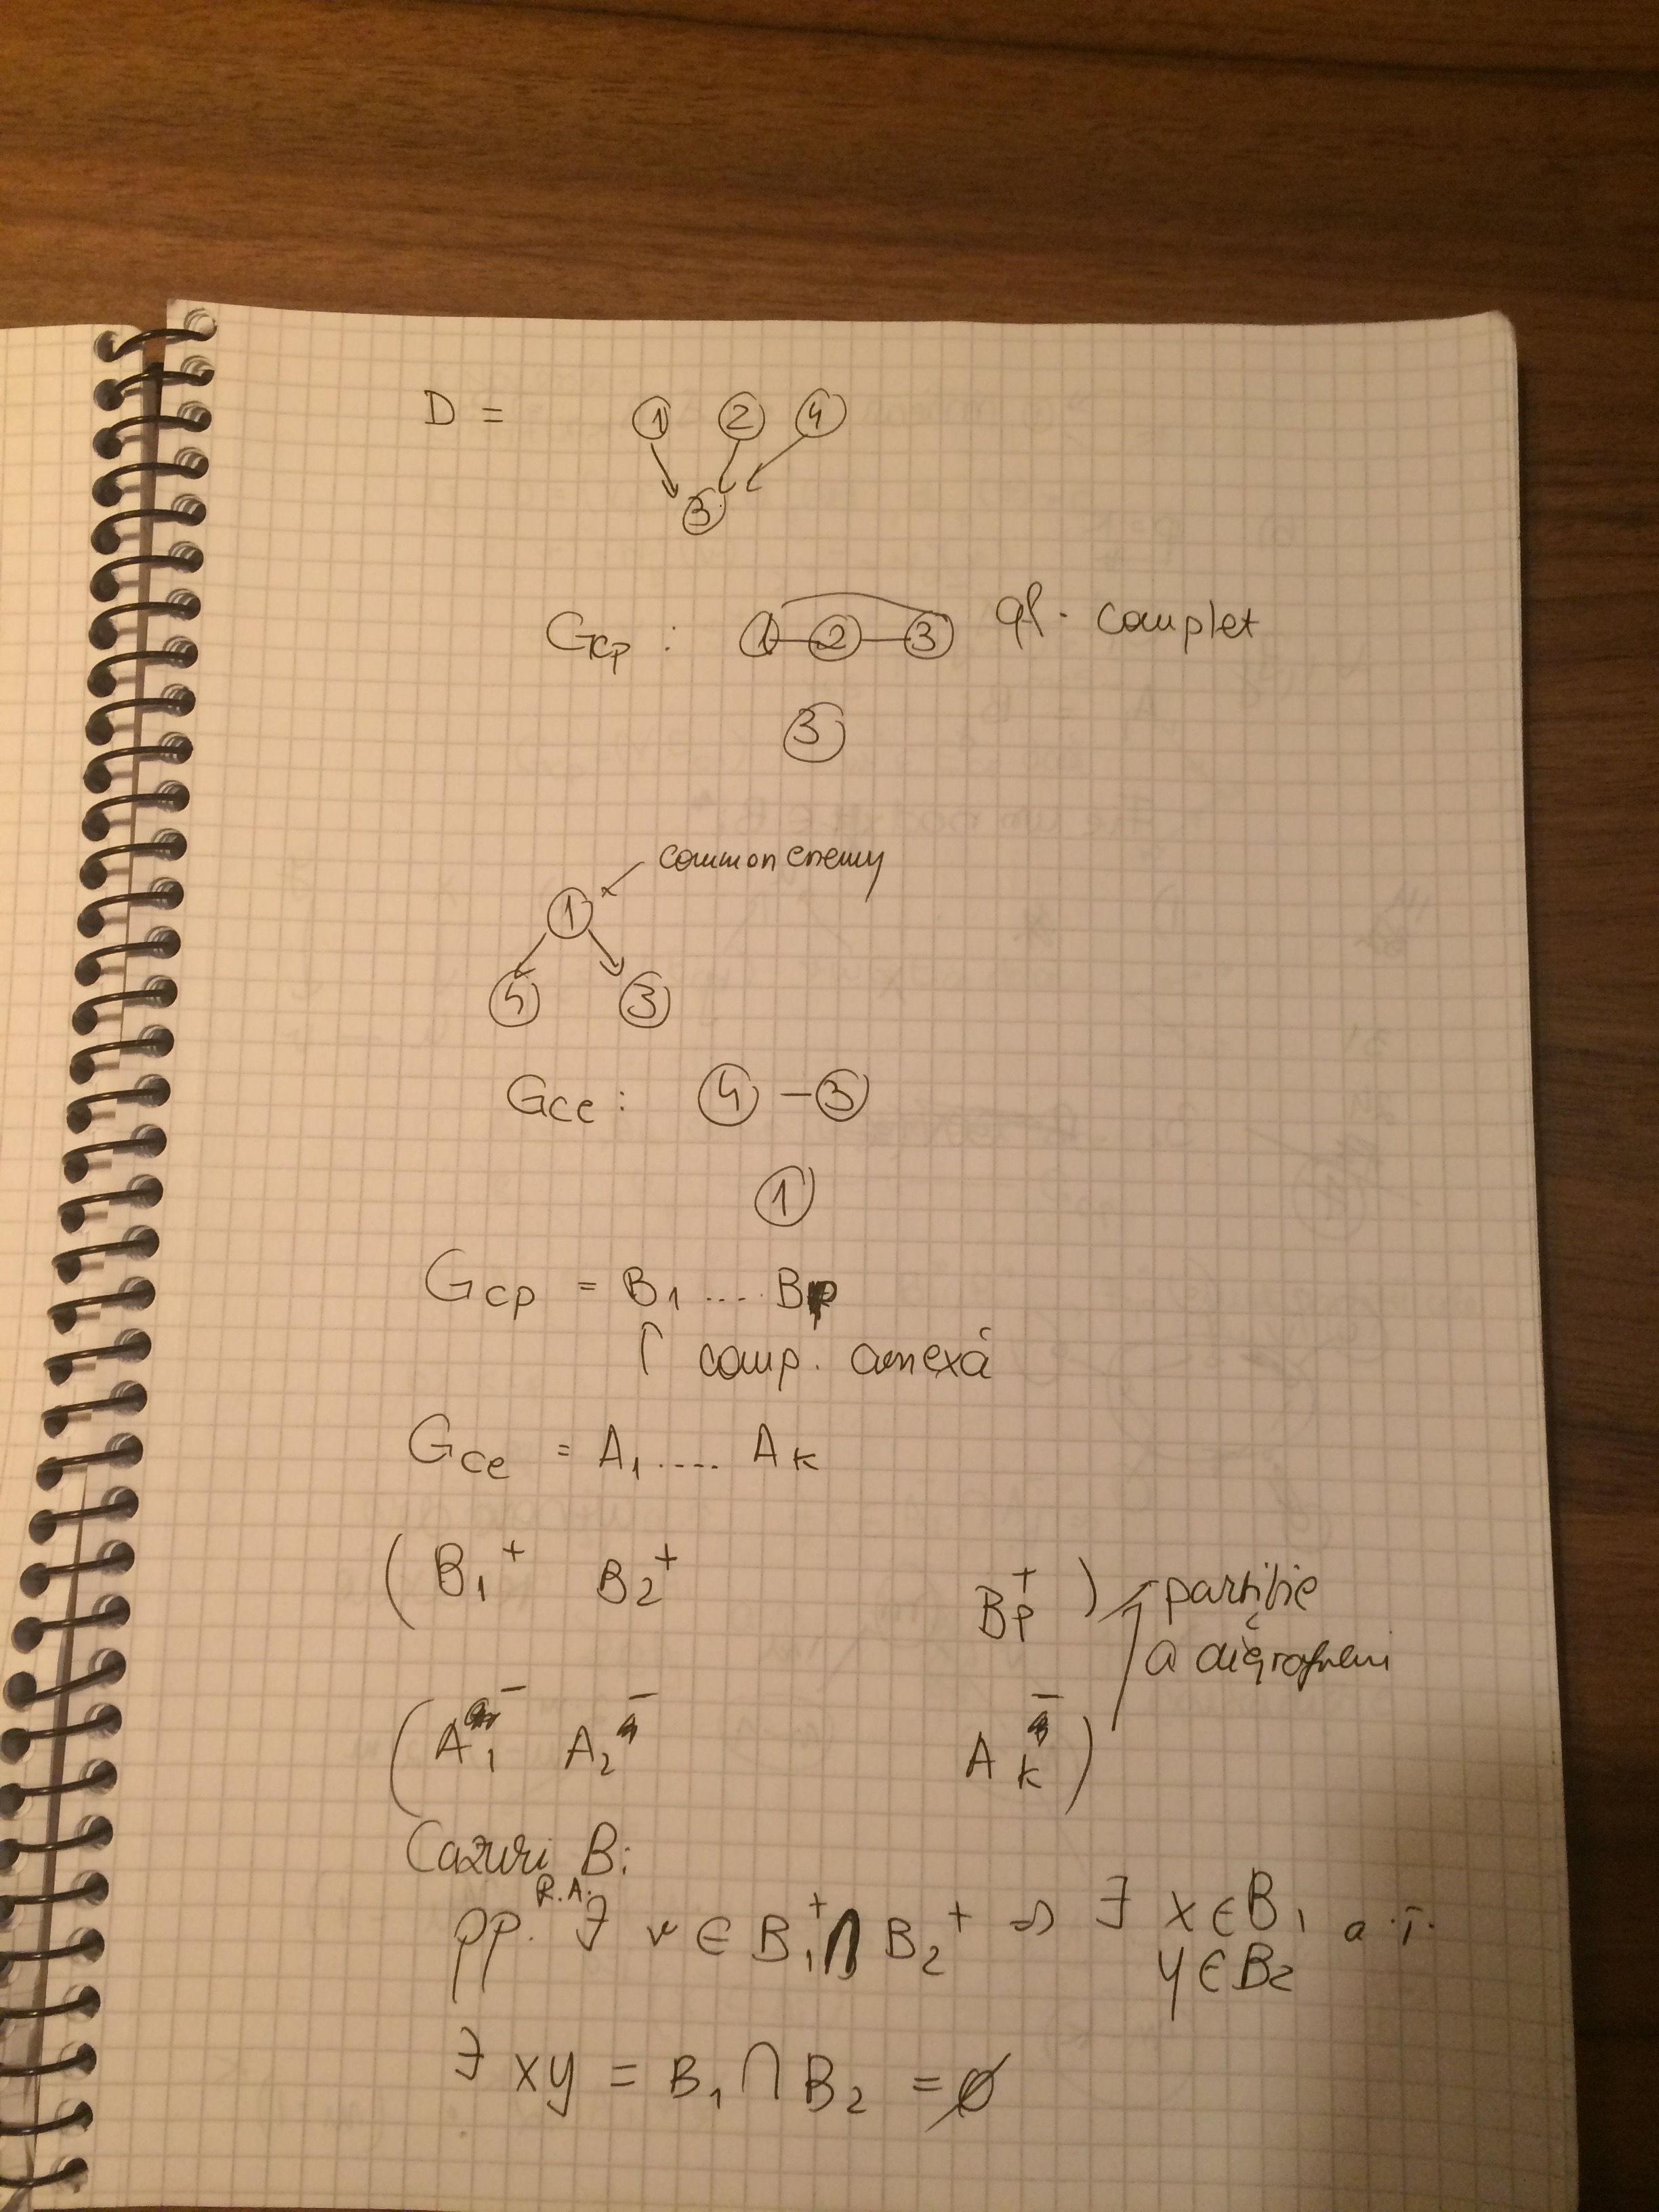 D = 1 2 4
3
Gcp : 1 2 3 gf. complet
3
common enemy
1
4 3
Gce : 4 - 3
1
Gcp = B1 .... Bp
↑ comp. conexă
Gce = A1 .... Ak
( B1+ B2+ Bp+ ) partiție
a digrafului
( A1- A2- Ak- )
Cazuri B:
R.A.
pp. ∃ v ∈ B1+ ∩ B2+ ⇒ ∃ x ∈ B1 a.î.
y ∈ B2
∃ xy = B1 ∩ B2 = ∅